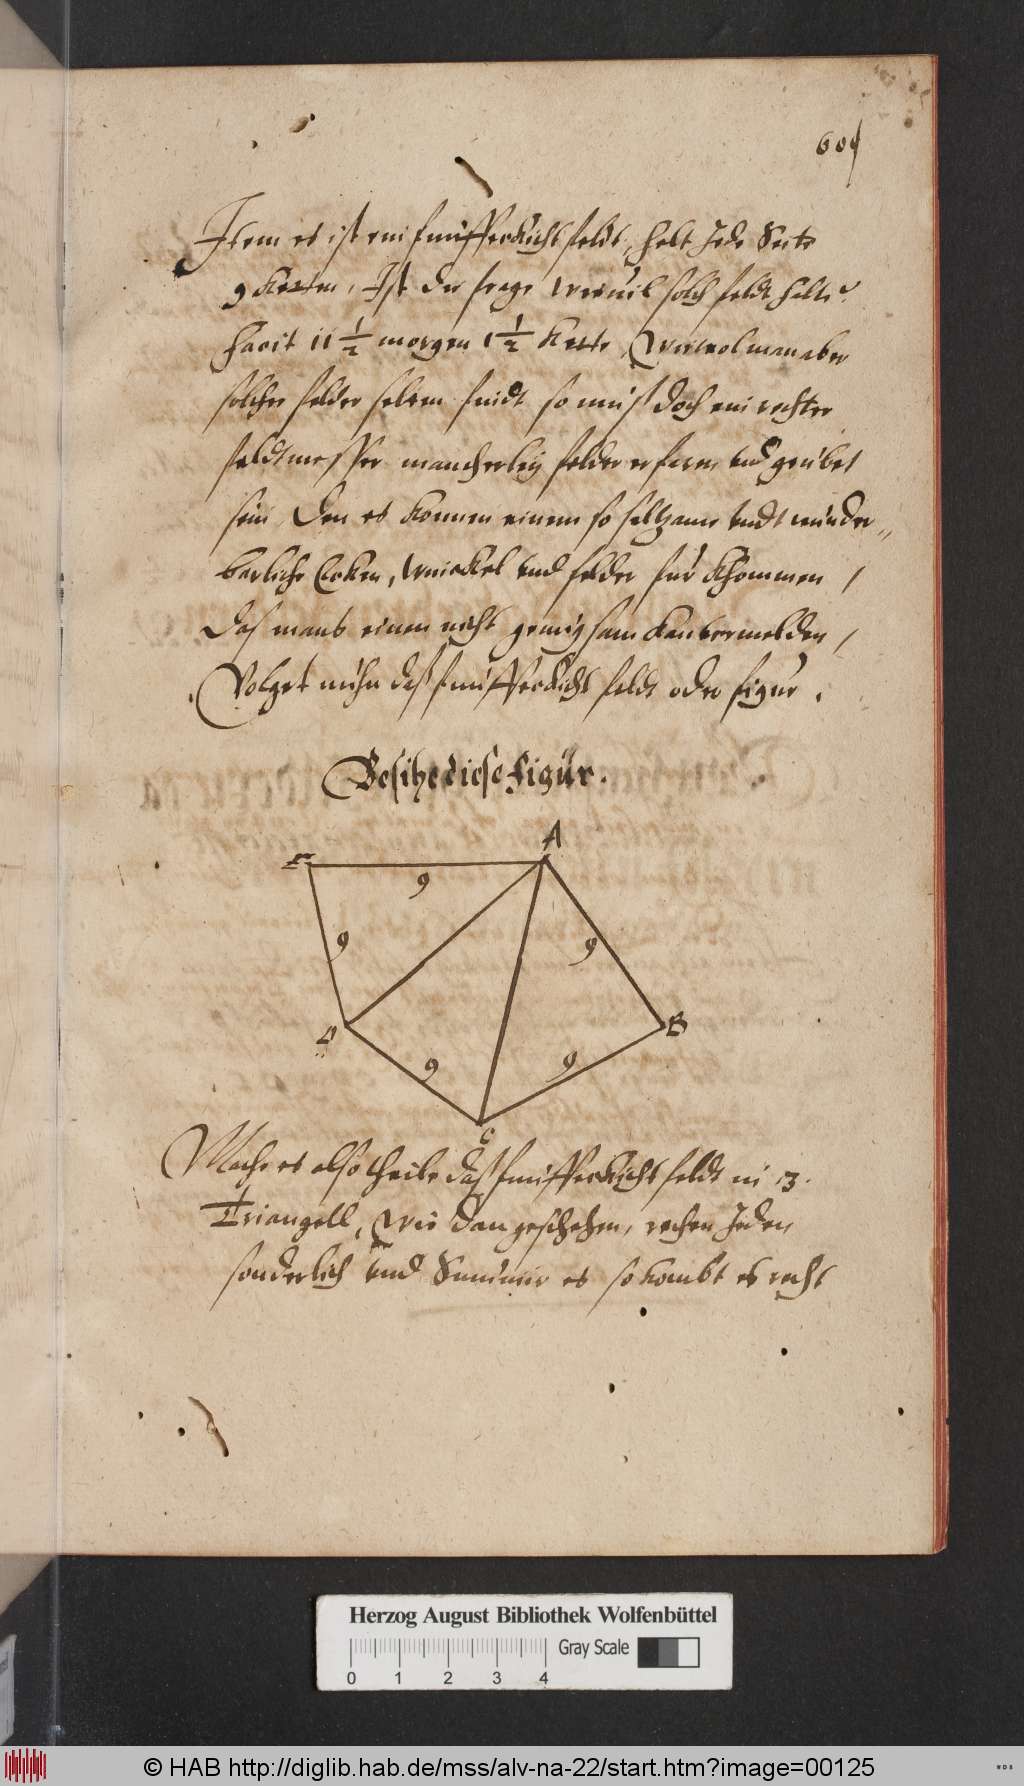 60
Item es ist ein fünffeckicht feldt, helt Jede Seite
9 Ketten, Ist die frage wieuil solch feldt halte
facit 11 1/2 morgen 1 1/2 Kette, Wiewol man aber
solcher felder selten findt so muß doch ein rechter
feldtmesser mancherleÿ felder erfaren vnd geübet
sein, Den es können einem so seltzame vndt wunder„
barliche Ecken, Winckel vnd felder für Khommen /
Das mans einen nicht genugsam kan vermelden /
Volget nuhn daß fünffeckicht feldt oder figur.
Besihe diese figür.
A
E
9
9
9
D
B
9
9
C
Mache es also theile daß fünffeckicht feldt in 3.
Triangell, Wie dan geschehen, rechen Jeden
sonderlich vnd Summir es so kombt es recht
Herzog August Bibliothek Wolfenbüttel
Gray Scale
0 1 2 3 4
© HAB http://diglib.hab.de/mss/alv-na-22/start.htm?image=00125